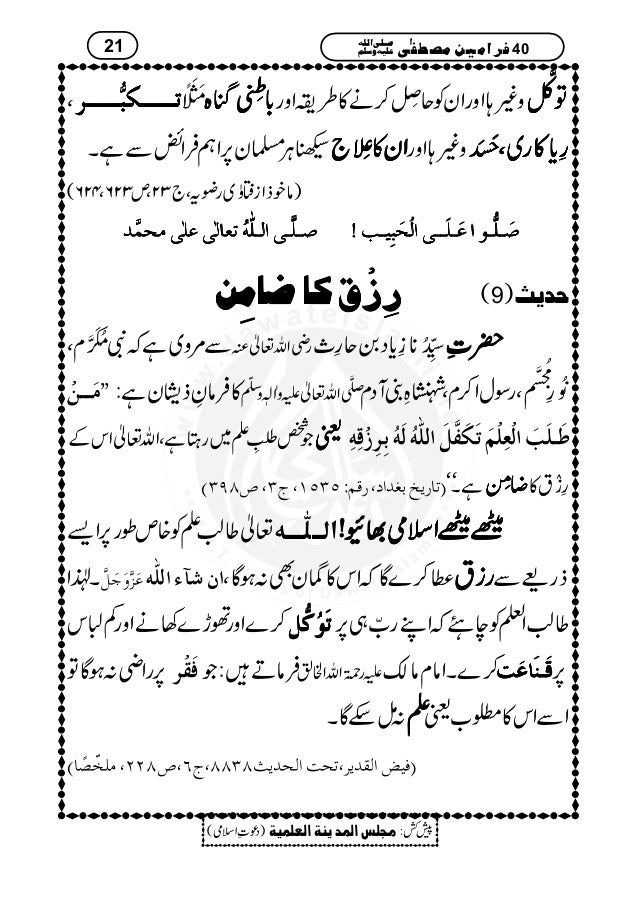 40 فرامینِ مصطفٰی صلی اللہ علیہ وسلم
21
توکُّل وغیرہا اور ان کو حاصِل کرنے کا طریقہ اور باطِنی گناہ مَثَلًا تکبُّر،
رِیاکاری، حَسَد وغیرہا اور ان کا عِلاج سیکھنا ہر مسلمان پر اہم فرائض سے ہے۔
(ماخوذ از فتاوٰی رضویہ، ج۲۳، ص۶۲۳، ۶۲۴)
صَلُّوا عَلَی الْحَبِیب ! صلَّی اللّٰہُ تعالٰی علٰی محمَّد
حدیث (9) رِزْق کا ضامِن
حضرتِ سیِّدُنا زِیاد بن حارِث رضی اللہ تعالیٰ عنہ سے مروی ہے کہ نبی مُکَرَّم،
نُورِ مُجَسَّم، رسولِ اکرم، شہنشاہِ بنی آدم صلَّی اللہ تعالیٰ علیہ والہٖ وسلَّم کا فرمانِ ذیشان ہے: ”مَنْ
طَلَبَ الْعِلْمَ تَکَفَّلَ اللّٰہُ لَہُ بِرِزْقِہِ یعنی جو شخص طلبِ علم میں رہتا ہے، اللہ تعالیٰ اس کے
رِزْق کا ضامِن ہے۔“ (تاریخ بغداد، رقم: ۱۵۳۵، ج۳، ص۳۹۸)
میٹھے میٹھے اسلامی بھائیو! اللّٰہ تعالیٰ طالب علم کو خاص طور پر ایسے
ذریعے سے رزق عطا کرے گا کہ اس کا گمان بھی نہ ہوگا، ان شآء اللّٰہ عَزَّوَجَلَّ۔ لہٰذا
طالب العلم کو چاہئے کہ اپنے ربّ ہی پر تَوَکُّل کرے اور تھوڑے کھانے اور کم لباس
پر قَنَاعَت کرے۔ امام مالک علیہ رحمۃ اللہ الخالق فرماتے ہیں: جو فَقْر پر راضی نہ ہوگا تو
اسے اس کا مطلوب یعنی علم نہ مل سکے گا۔
(فیض القدیر، تحت الحدیث۸۸۳۸، ج۶، ص۲۲۸، ملخّصًا)
پیش کش: مجلس المدینۃ العلمیۃ (دعوتِ اسلامی)